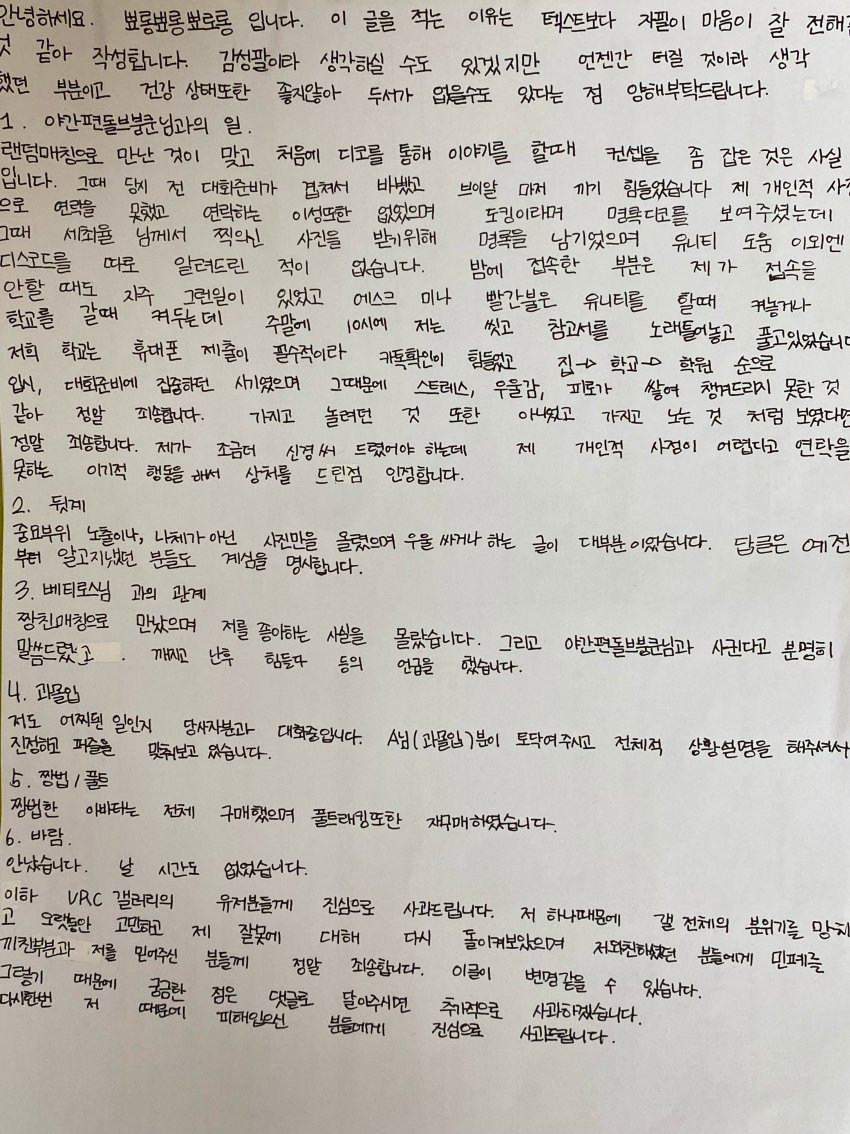 안녕하세요. 뾰롱뾰롱뾰로롱 입니다. 이 글을 적는 이유는 텍스트보다 자필이 마음이 잘 전해질
것 같아 작성합니다. 감성팔이라 생각하실 수도 있겠지만 언젠간 터질 것이라 생각
했던 부분이고 건강 상태또한 좋지않아 두서가 없을수도 있다는 점 양해부탁드립니다.
1. 야간편돌브붕쿤님과의 일.
랜덤매칭으로 만난 것이 맞고 처음에 디코를 통해 이야기를 할때 컨셉을 좀 잡은 것은 사실
입니다. 그때 당시 전 대회준비가 겹쳐서 바빴고 브이알 마저 끼기 힘들었습니다 제 개인적 사정
으로 연락을 못했고 연락하는 이성또한 없었으며 도킹이라며 명륙디코를 보여주셨는데
그때 세최율 님께서 찍으신 사진을 받기위해 명목을 남기었으며 유니티 도움 이외엔
디스코드를 따로 알려드린 적이 없습니다. 밤에 접속한 부분은 제가 접속을
안할 때도 자주 그런일이 있었고 에스크 미나 빨간불은 유니티를 할때 켜놓거나
학교를 갈때 켜두는데 주말에 10시에 저는 씻고 참고서를 노래틀어놓고 풀고있었습니다
저희 학교는 휴대폰 제출이 필수적이라 카톡확인이 힘들었고 집→ 학교→ 학원 순으로
입시, 대회준비에 집중하던 시기였으며 그때문에 스트레스, 우울감, 피로가 쌓여 챙겨드리지 못한 것
같아 정말 죄송합니다. 가지고 놀려던 것 또한 아니었고 가지고 노는 것 처럼 보였다면
정말 죄송합니다. 제가 조금더 신경써 드렸어야 하는데 제 개인적 사정이 어렵다고 연락을
못하는 이기적 행동을 해서 상처를 드린점 인정합니다.
2. 뒷계
중요부위 노출이나, 나체가 아닌 사진만을 올렸으며 우울 싸거나 하는 글이 대부분이었습니다. 답글은 예전
부터 알고지냈던 분들도 계심을 명시합니다.
3. 베티로스님 과의 관계
짱친매칭으로 만났으며 저를 좋아하는 사실을 몰랐습니다. 그리고 야간편돌브붕쿤님과 사귄다고 분명히
말씀드렸고 . 깨지고 난후 힘들다 등의 언급을 했습니다.
4. 과몰입
저도 어찌된 일인지 당사자분과 대화중입니다. A님(과몰입)분이 토닥여주시고 전체적 상황설명을 해주셔서
진정하고 퍼즐을 맞춰보고 있습니다.
5. 짱법/풀트
찡법한 아바타는 전체 구매했으며 풀트래킹또한 재구매하였습니다.
6. 바람.
안났습니다. 날 시간도 없었습니다.
이하 VRC 갤러리의 유저분들께 진심으로 사과드립니다. 저 하나때문에 갤 전체의 분위기를 망치
고 오랫동안 고민하고 제 잘못에 대해 다시 돌이켜보았으며 저와친하셨던 분들에게 민폐를
끼친부분과 저를 믿어주신 분들께 정말 죄송합니다. 이글이 변명같을 수 있습니다.
그렇기 때문에 궁금한 점은 댓글로 달아주시면 추가적으로 사과하겠습니다.
다시한번 저 때문에 피해입으신 분들에게 진심으로 사과드립니다.